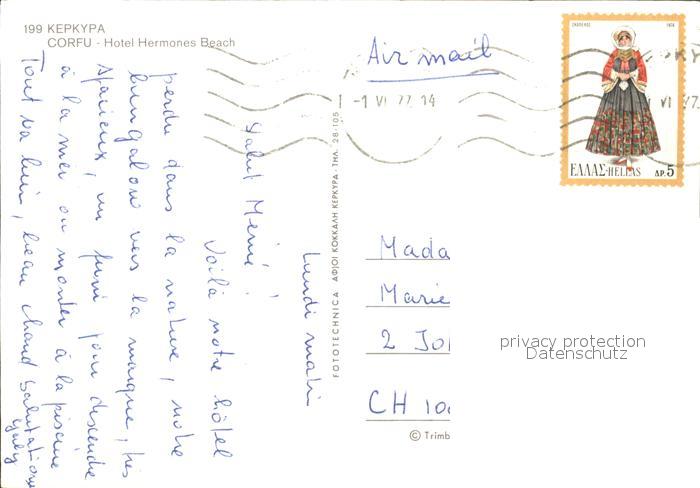 199 ΚΕΡΚΥΡΑ
CORFU - Hotel Hermones Beach
Air mail
-1 VI 77. 14
VI 77.
ΣΚΟΠΕΛΟΣ 1974
ΕΛΛΑΣ-HELLAS ΔΡ. 5
FOTOTECHNICA ΑΦΙΟΙ ΚΟΚΚΑΛΗ ΚΕΡΚΥΡΑ - ΤΗΛ. 28-105
Lundi matin
Salut Mémé !
Voilà notre hôtel
perdu dans la nature, notre
bungalow vers la marque, très
spacieux, un funi pour descendre
à la mer ou monter à la piscine
Tout va bien, beau chaud Salutations
Mada
Marie
2 Jo
CH 10
© Trimb
privacy protection
Datenschutz